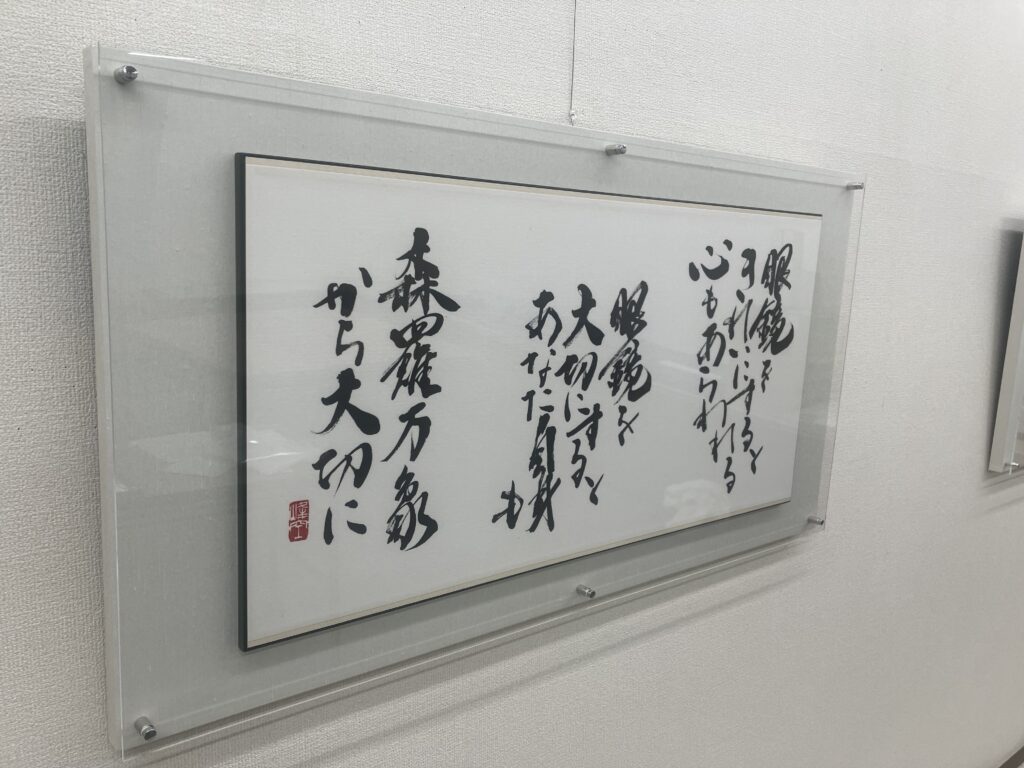 眼鏡を
きれいにすると
心もあらわれる
眼鏡を
大切にすると
あなた自身も
森羅万象
から大切に